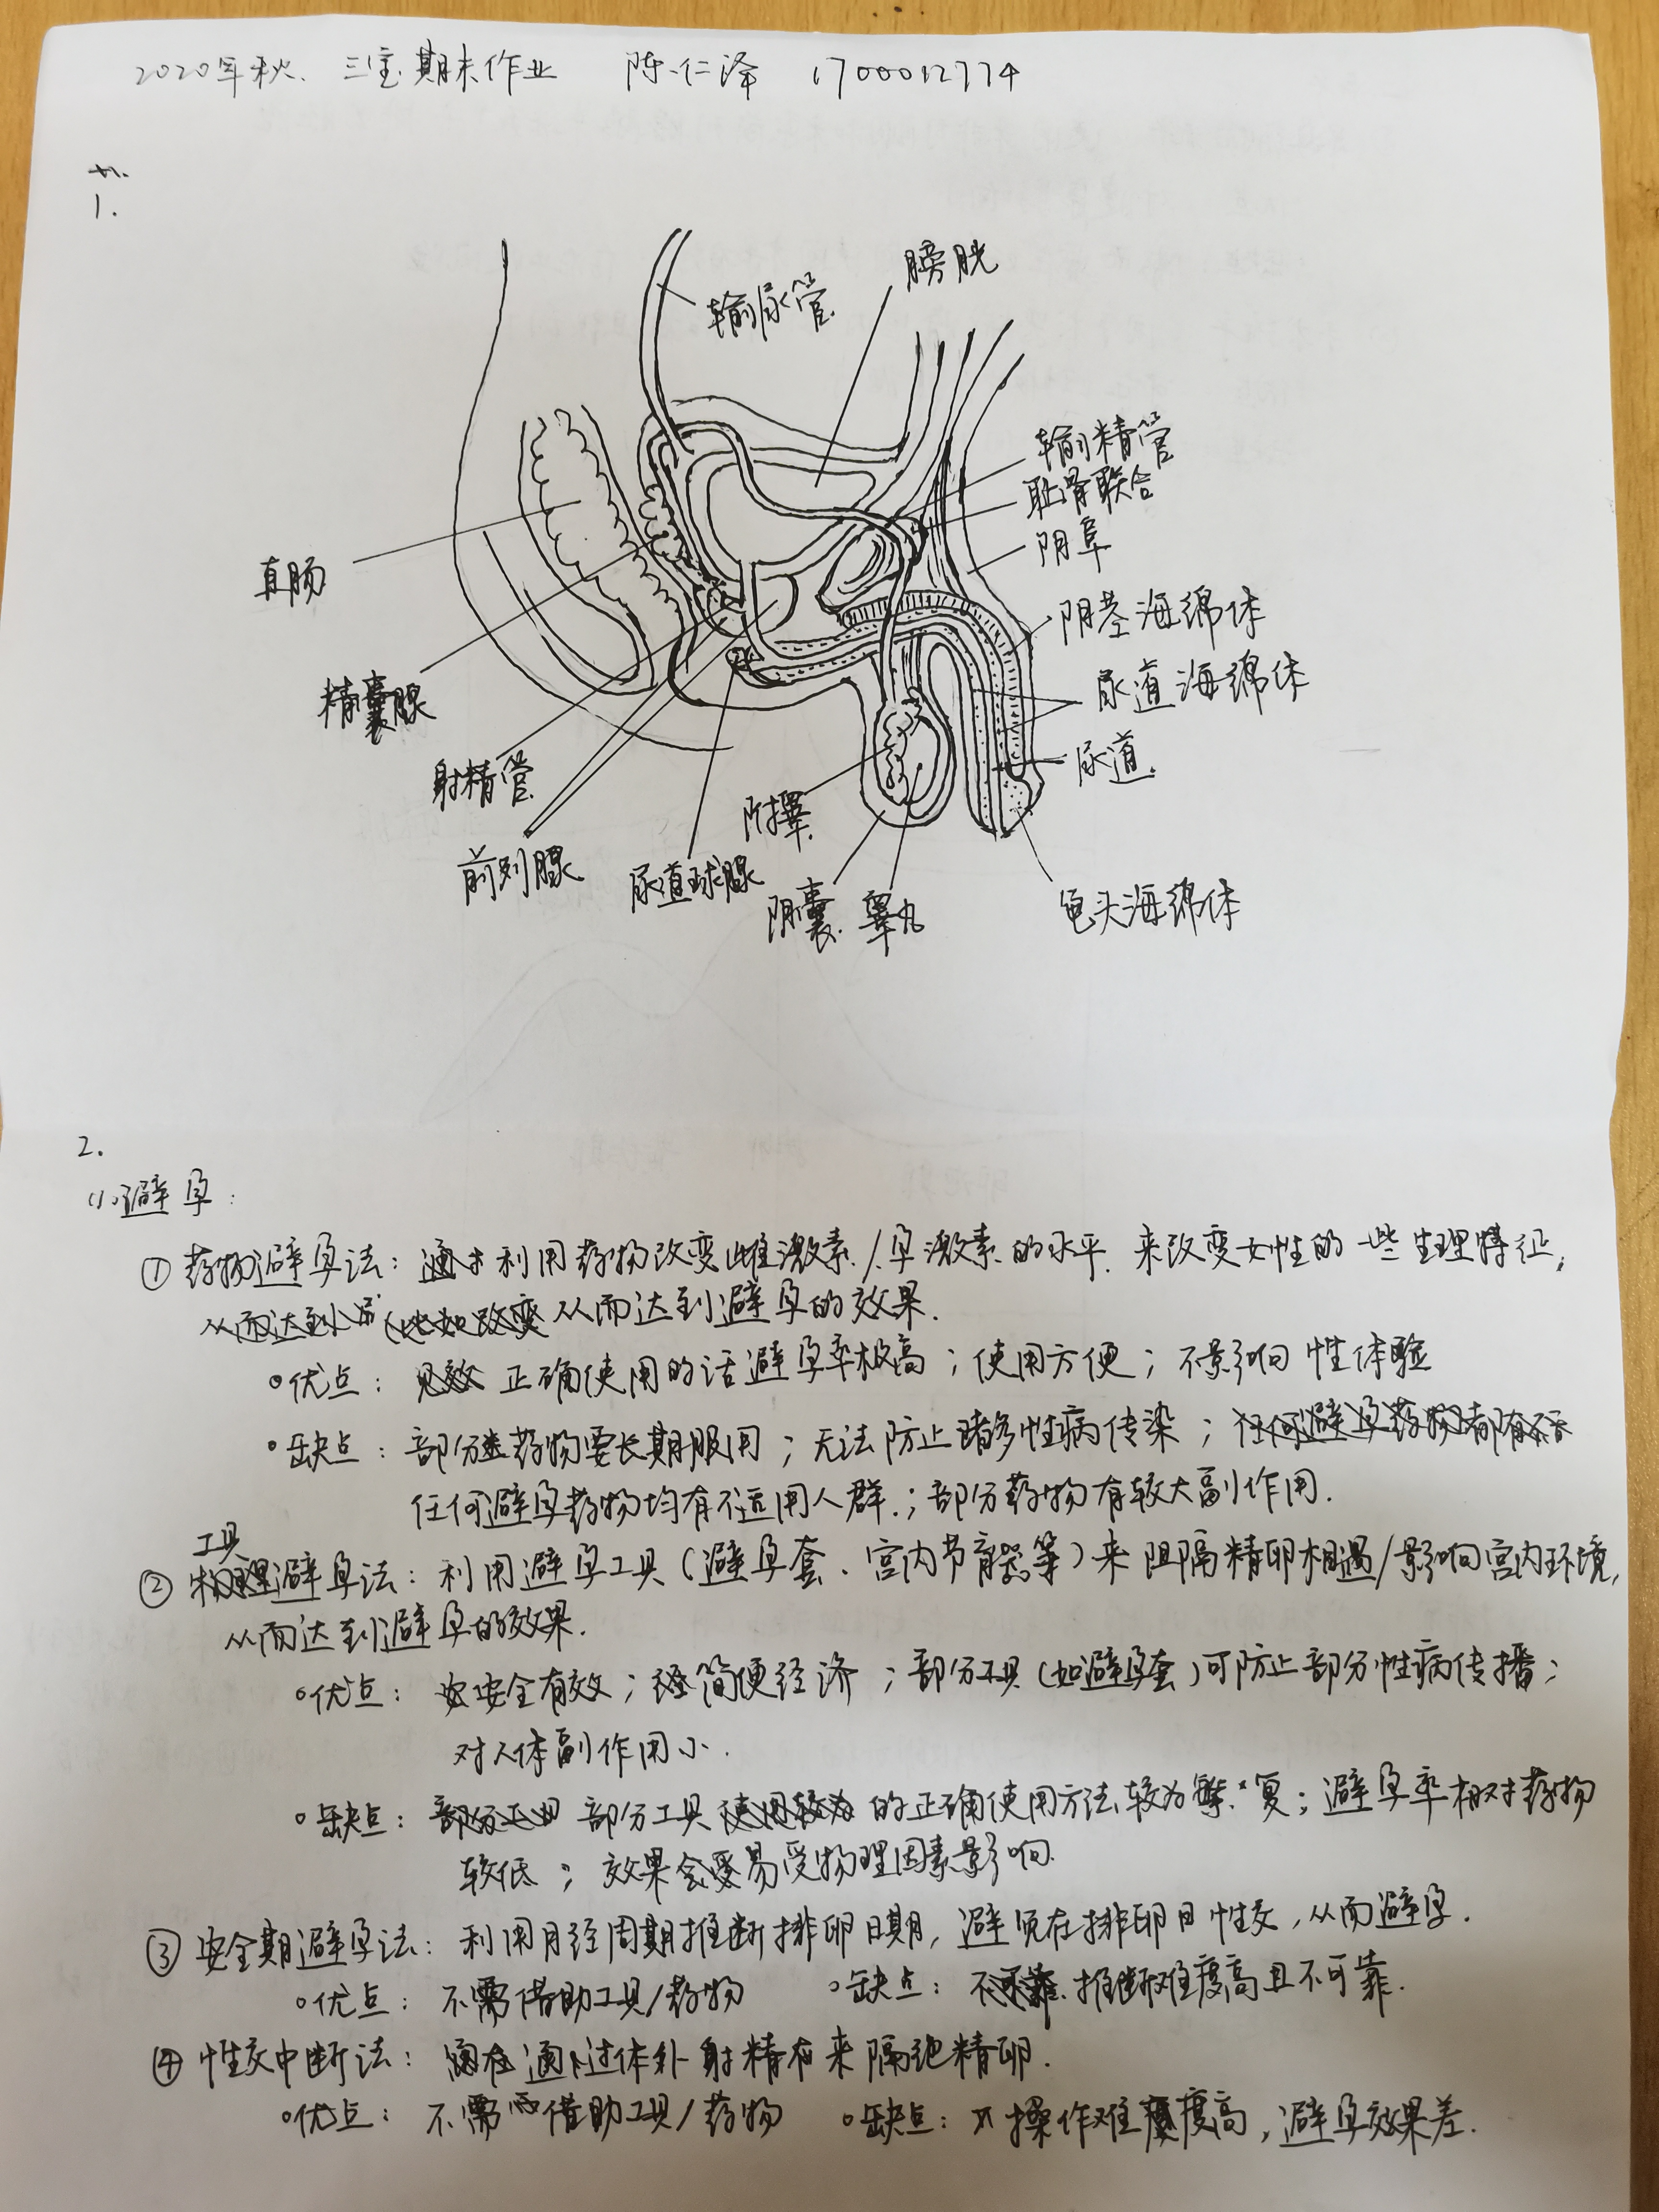 2020年秋 三宝期末作业 陈仁泽 1700012774
一.
1.
输尿管
膀胱
输精管
耻骨联合
阴阜
阴茎海绵体
尿道海绵体
尿道
直肠
精囊腺
射精管
前列腺
尿道球腺
附睾
阴囊
睾丸
龟头海绵体
2.
(1)避孕:
① 药物避孕法: 利用药物改变雌激素/孕激素的水平 来改变女性的一些生理特征,
从而达到避孕的效果.
优点: 正确使用的话避孕率极高; 使用方便; 不影响性体验
缺点: 部分药物要长期服用; 无法防止诸多性病传染;
任何避孕药物均有不适用人群; 部分药物有较大副作用.
② 工具避孕法: 利用避孕工具(避孕套、宫内节育器等)来阻隔精卵相遇/影响宫内环境,
从而达到避孕的效果.
优点: 安全有效; 简便经济; 部分工具(如避孕套)可防止部分性病传播;
对人体副作用小.
缺点: 部分工具的正确使用方法较为繁复; 避孕率相对药物
较低; 效果会易受物理因素影响.
③ 安全期避孕法: 利用月经周期推断排卵日期, 避免在排卵日性交, 从而避孕.
优点: 不需借助工具/药物 缺点: 推断难度高且不可靠.
④ 性交中断法: 通过体外射精来隔绝精卵.
优点: 不需借助工具/药物 缺点: 操作难度高, 避孕效果差.